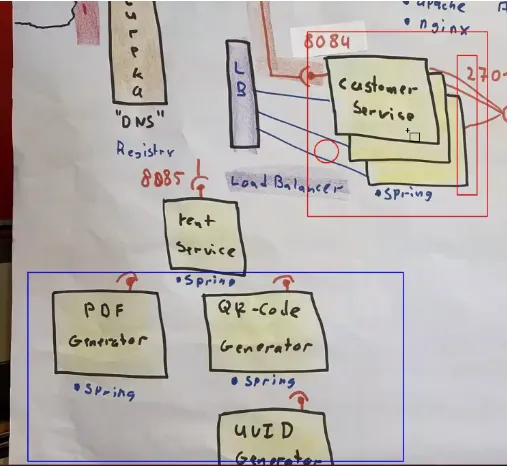 apache
nginx
8084
eureka
LB
Customer
Service
270
"DNS"
Registry
8085
Load Balancer
Spring
rent
Service
Spring
PDF
Generator
QR-Code
Generator
Spring
Spring
UUID
Generator